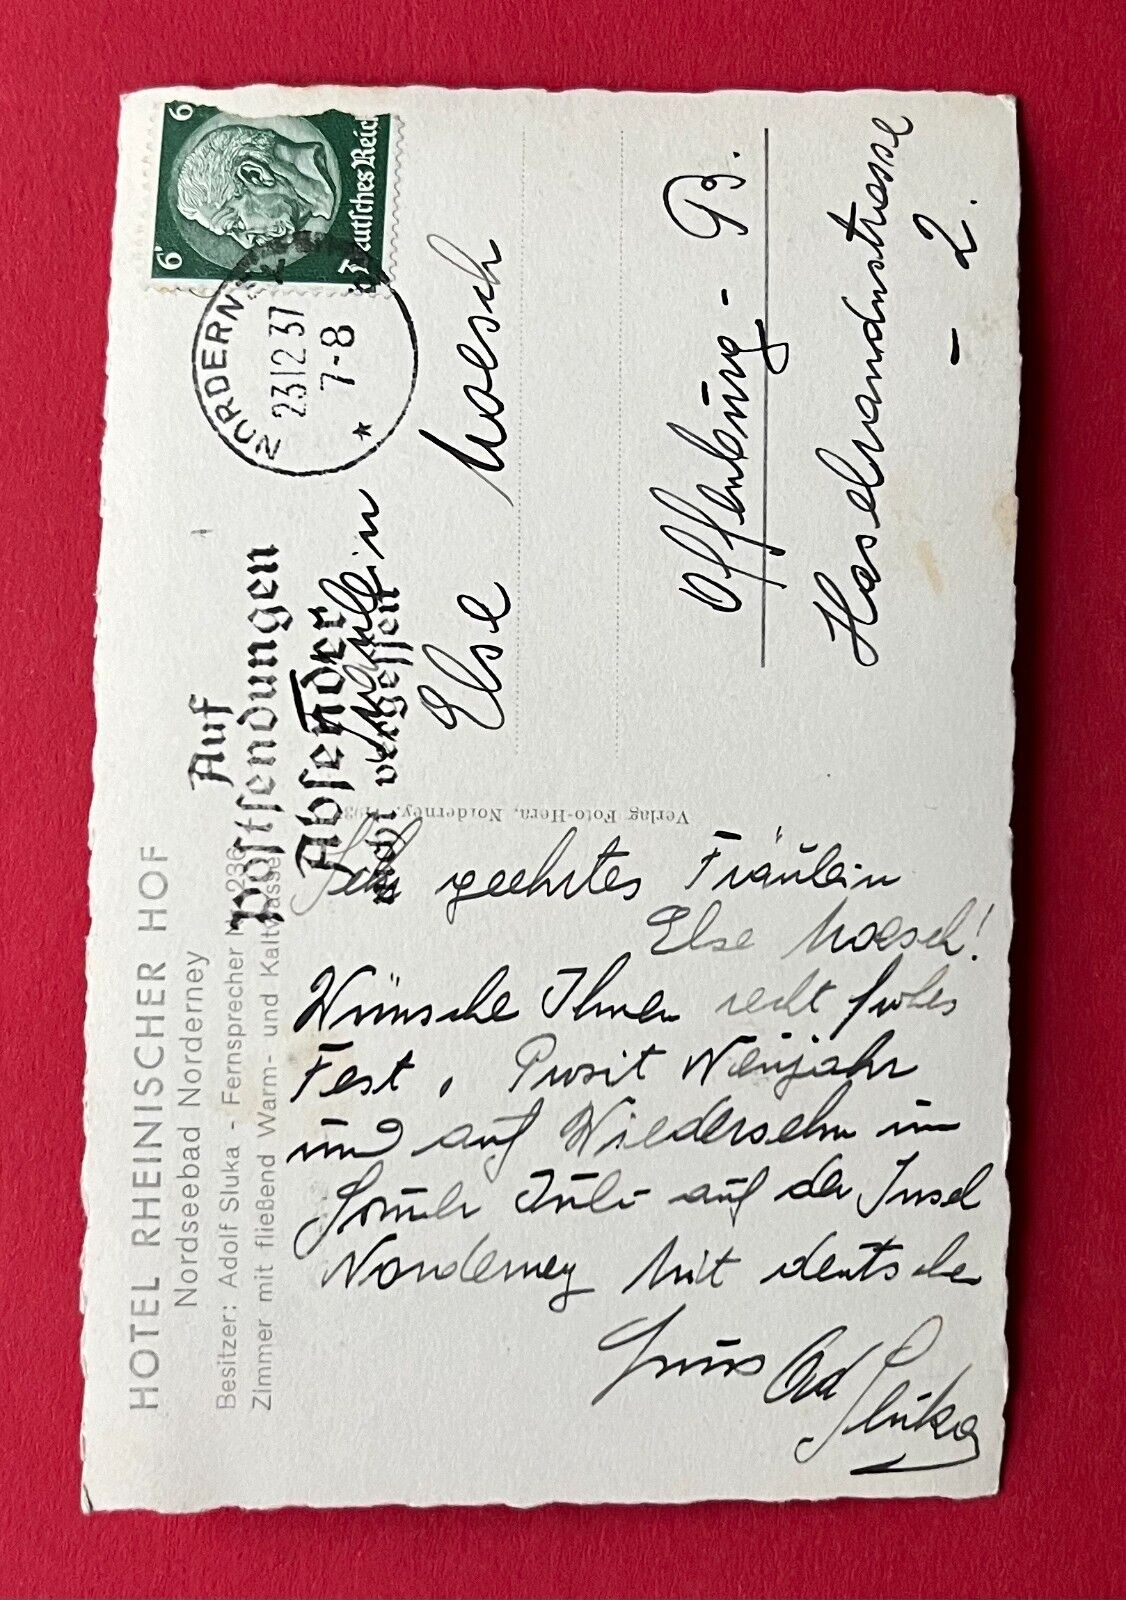 HOTEL RHEINISCHER HOF
Nordseebad Norderney
Besitzer: Adolf Sluka - Fernsprecher 236
Zimmer mit fließend Warm- und Kaltwasser
Sehr geehrtes Fräulein
Else Moesch!
Wünsche Ihnen recht frohes
Fest, Prosit Neujahr
und auf Wiedersehn im
Juli auf der Insel
Norderney Mit deutschen
Gruss
Sluka
Verlag Foto-Hera, Norderney.
Auf
Postsendungen
Absender
nicht vergessen
NORDERNEY
23.12.37
7-8
*
6
6
Deutsches Reich
Fräulein
Else Moesch
Offenburg - B.
Haselwanderstrasse
- 2.